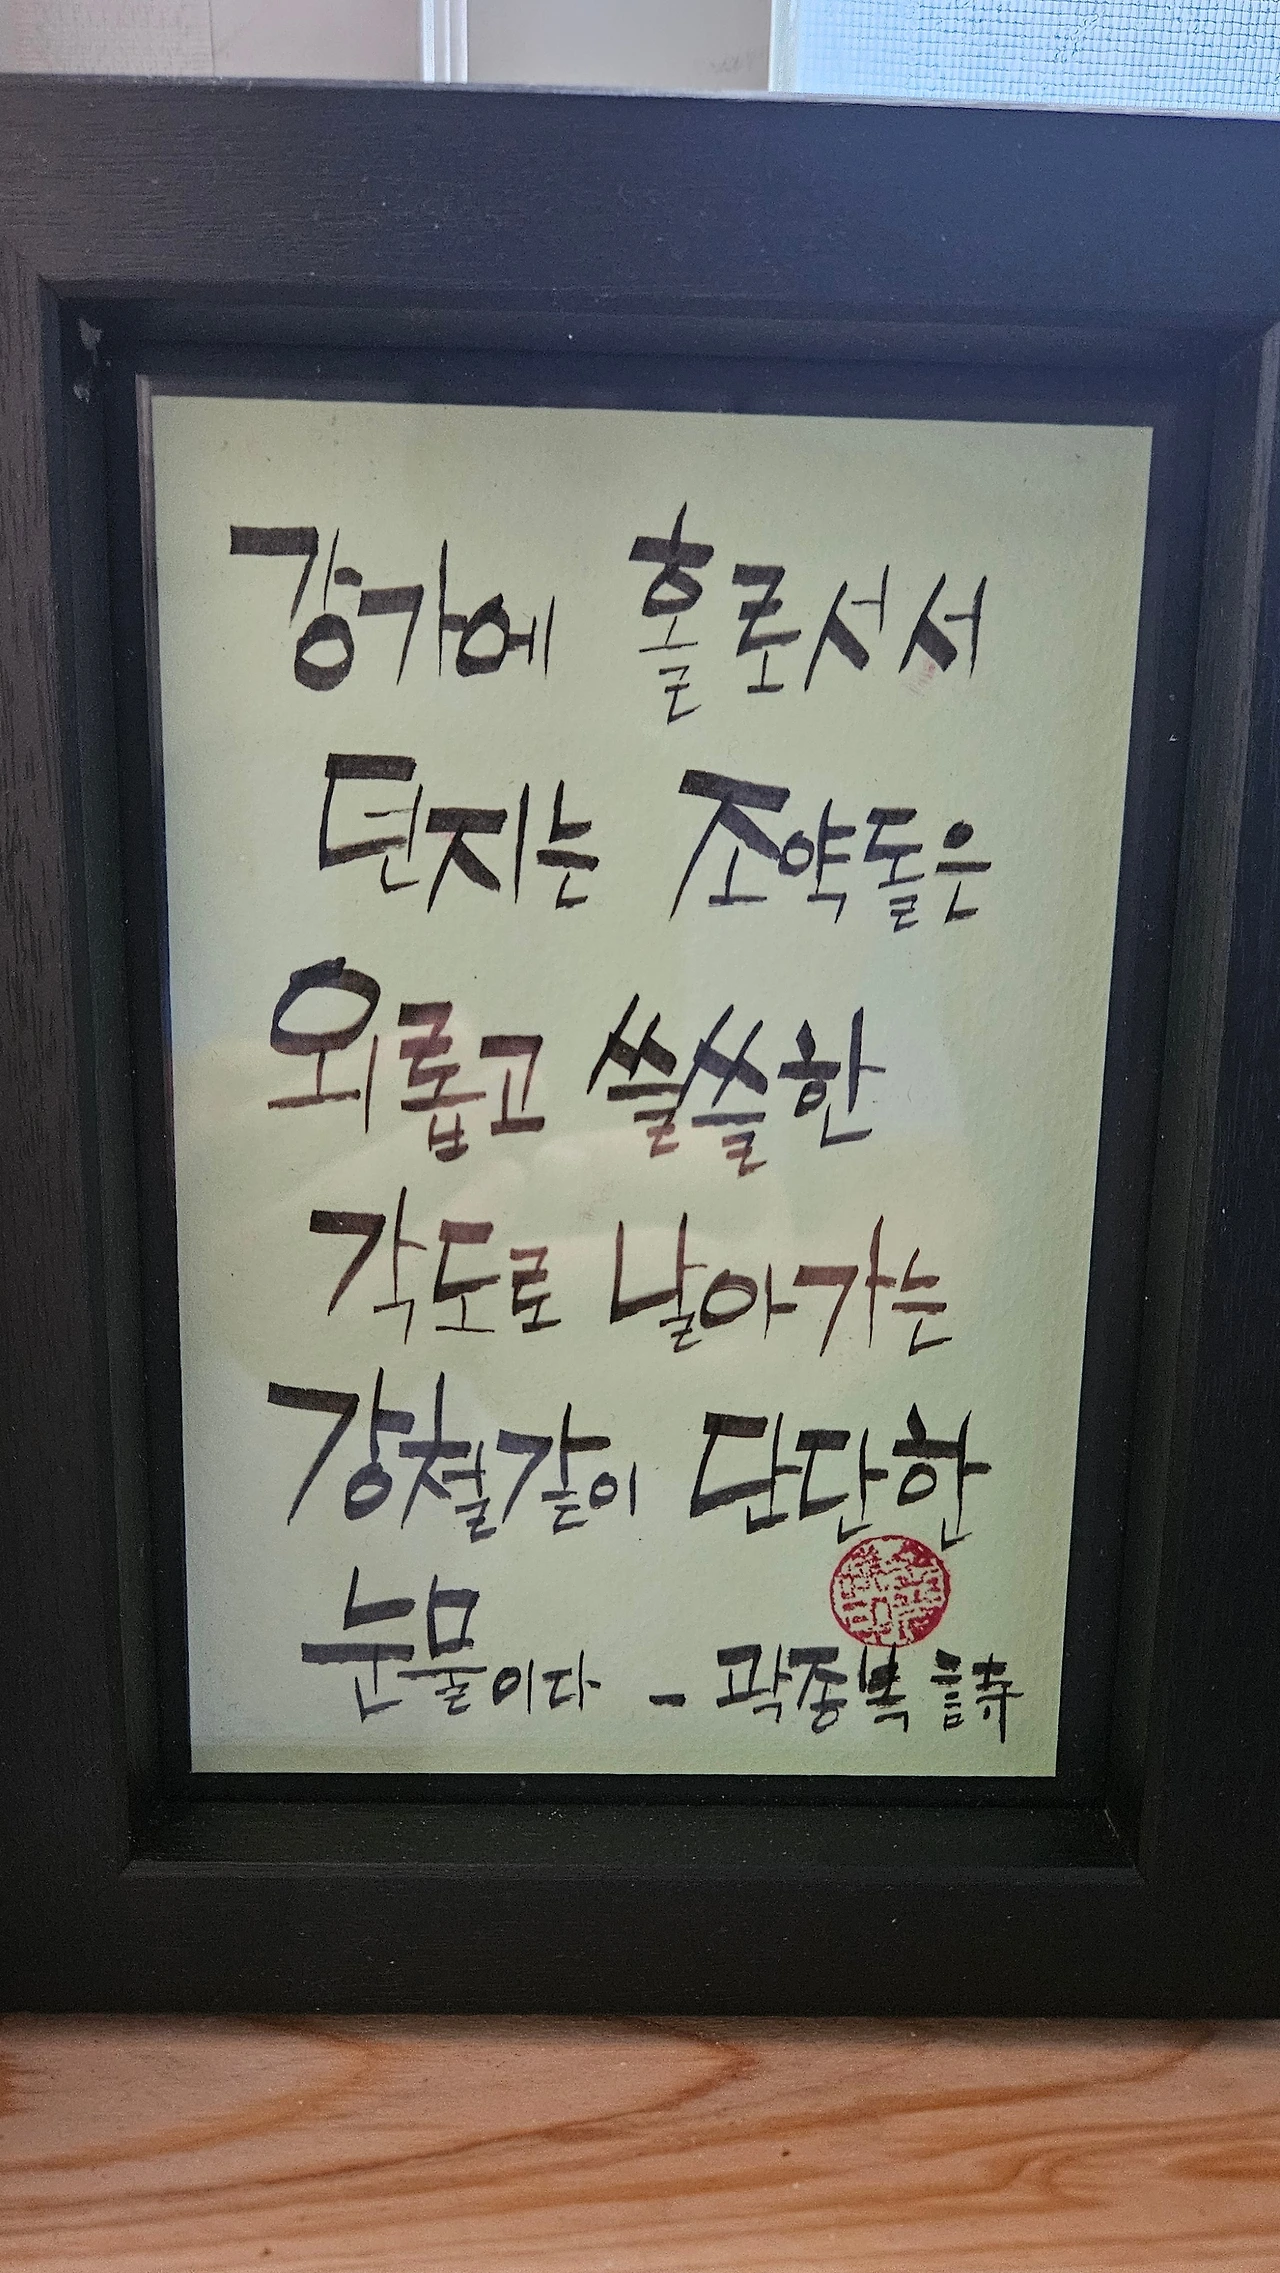 강가에 홀로서서
던지는 조약돌은
외롭고 쓸쓸한
각도로 날아가는
강철같이 단단한
눈물이다 - 곽종복 詩